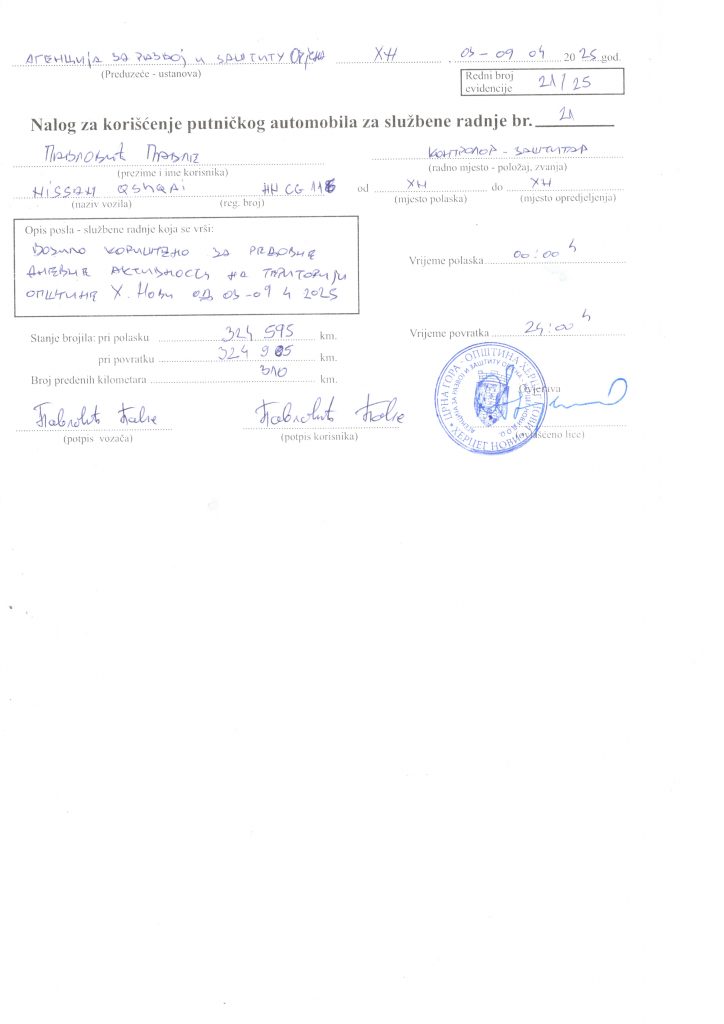 АГЕНЦИЈА ЗА РАЗВОЈ и ЗАШТИТУ Орјена ХН 03-09 04 2025 god.
(Preduzeće - ustanova)
Redni broj evidencije 21/25
Nalog za korišćenje putničkog automobila za službene radnje br. 21
Павловић Павле КОНТРОЛОР - ЗАШТИТАР
(prezime i ime korisnika) (radno mjesto - položaj, zvanja)
NISSAN QSHQAI HN CG 116 od ХН do ХН
(naziv vozila) (reg. broj) (mjesto polaska) (mjesto opredjeljenja)
Opis posla - službene radnje koja se vrši:
ВОЗИЛО КОРИШТЕНО ЗА РЕДОВНЕ
ДНЕВНЕ АКТИВНОСТИ НА ТЕРИТОРИЈИ
ОПШТИНЕ Х. Нови ОД 03-09 4 2025
Vrijeme polaska 00:00 h
Stanje brojila: pri polasku 324 595 km.
Vrijeme povratka 24:00 h
pri povratku 324 905 km.
Broj pređenih kilometara 310 km.
Ovjerava
Павловић Павле Павловић Павле
(potpis vozača) (potpis korisnika) (ovlašćeno lice)
ЦРНА ГОРА - ОПШТИНА ХЕРЦЕГ НОВИ
ХЕРЦЕГ НОВИ